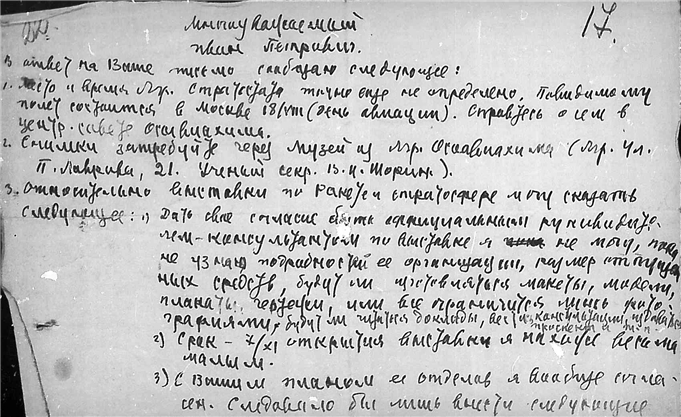 17.
Многоуважаемый
Иван Петрович.
В ответ на Ваше письмо сообщаю следующее:
1. Место и время Лгр. стратостата точно еще не определено. Повидимому
полет состоится в Москве 18/VIII (день авиации). Справьтесь о сем в
центр. совете Осавиахима.
2. Снимки затребуйте через музей из Лгр. Осоавиахима (Лгр. ул.
П. Лаврова, 21. Ученый секр. В.И. Шорин.).
3. Относительно выставки по ракетам и стратосфере могу сказать
следующее: 1) Дать свое согласие быть официальным руководите-
лем-консультантом по выставке я не могу, пока
не узнаю подробностей ее организации, размер отпущен-
ных средств, будут ли изготовляться макеты, модели,
планаты, чертежи, или все ограничится лишь фото-
графиями, будут ли читаться доклады, вестись консультации, издаваться
проспекты и т.п.
2) Срок – X/XI открытия выставки я нахожу весьма
малым.
3) С Вашим планом ее отделов я вообще согла-
сен. Следовало бы лишь внести следующие